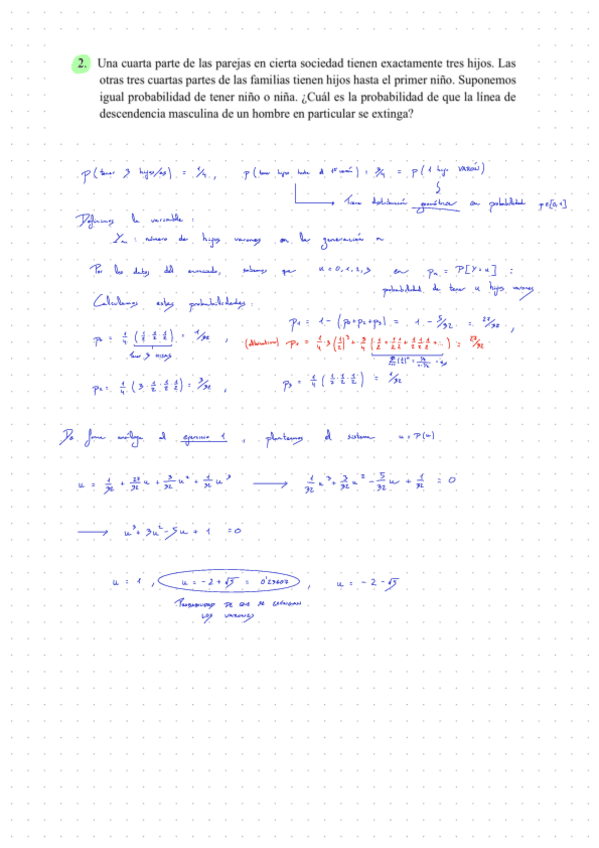 2. Una cuarta parte de las parejas en cierta sociedad tienen exactamente tres hijos. Las
otras tres cuartas partes de las familias tienen hijos hasta el primer niño. Suponemos
igual probabilidad de tener niño o niña. ¿Cuál es la probabilidad de que la línea de
descendencia masculina de un hombre en particular se extinga?
P(tener 3 hijos/as) = 1/4, P(tener hijos hasta el 1º varón) = 3/4 = P(1 hijo VARÓN)
Tiene distribución geométrica en probabilidad p∈[0,1].
Definimos la variable:
Yn: número de hijos varones en la generación n
Por los datos del enunciado, sabemos que u=0,1,2,3 en pu = P[Y=u]:
probabilidad de tener u hijos varones
Calculamos estas probabilidades:
p0 = 1/4 (1/2·1/2·1/2) = 1/32,
tener 3 niñas
p1 = 1-(p0+p2+p3) = 1-5/32 = 27/32,
p1 = 1/4·3(1/2)³+3/4(1/2+1/2·1/2+1/2·1/2·1/2+...) = 27/32
p2 = 1/4 (3·1/2·1/2·1/2) = 3/32,
p3 = 1/4 (1/2·1/2·1/2) = 1/32
De forma análoga al ejercicio 1, planteamos el sistema u=P(u)
u = 1/32 + 27/32 u + 3/32 u² + 1/32 u³ → 1/32 u³ + 3/32 u² - 5/32 u + 1/32 = 0
→ u³+3u²-5u+1=0
u = 1, u = -2+√5 = 0'23607, u = -2-√5
PROBABILIDAD DE QUE SE EXTINGAN
LOS VARONES